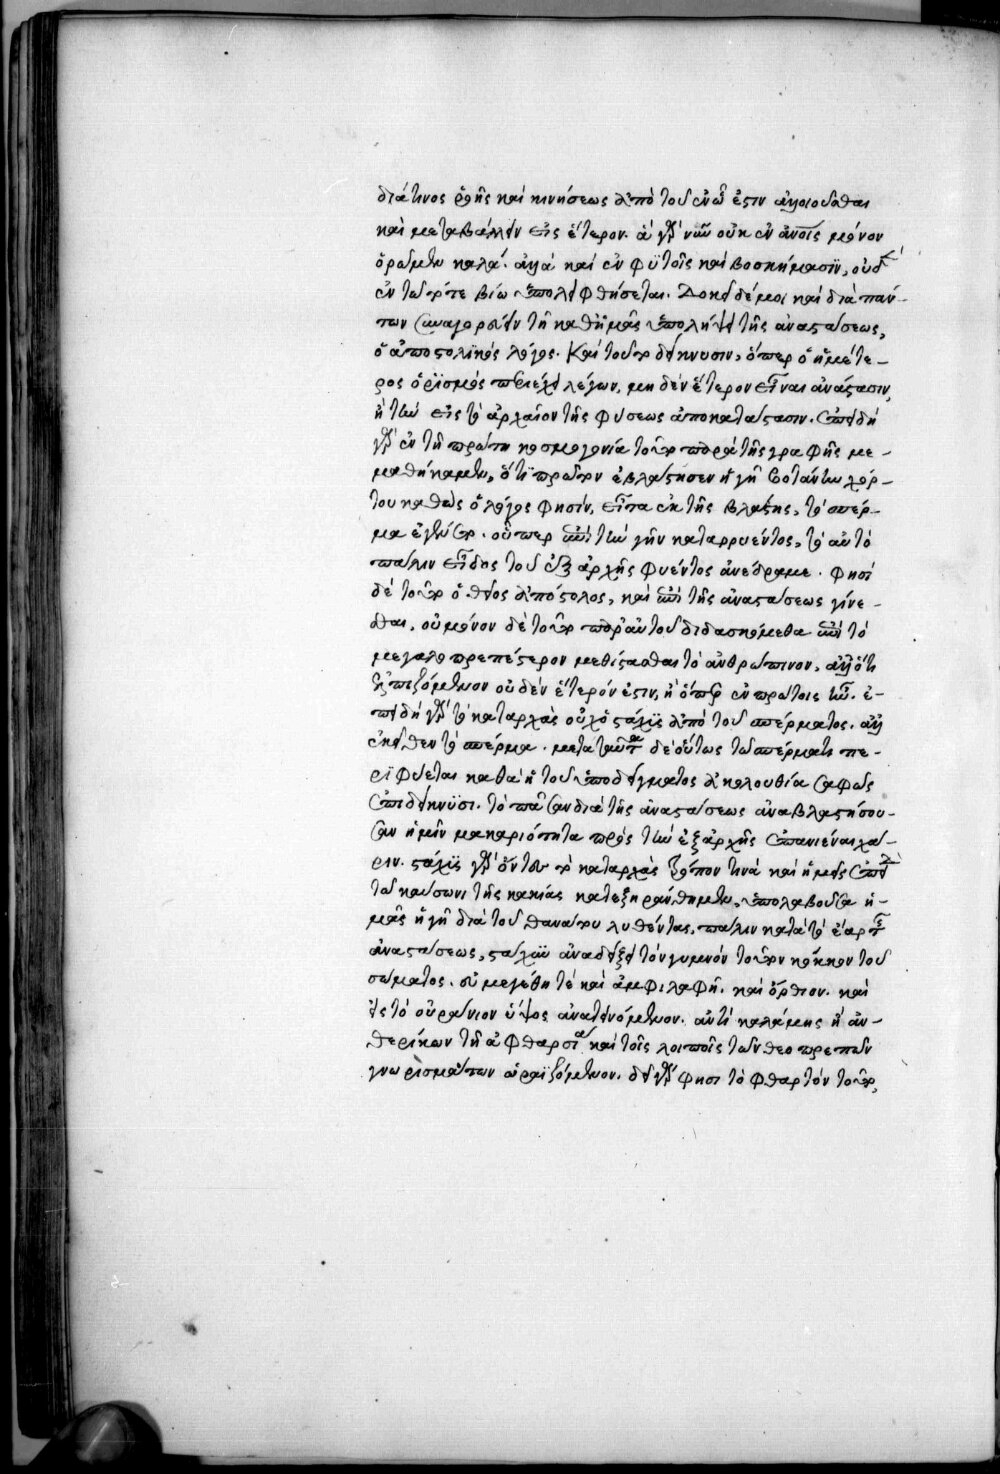 διά τινος ῥοῆς καὶ κινήσεως ἀπὸ τοῦ ἐν ὧ ἐστιν ἀλλοιοῦσθαι
καὶ μεταβάλλειν εἰς ἕτερον. ἃ γὰρ νῦν οὐκ ἐν ἀνοις μόνον
ὁρῶμεν καλά. ἀλλὰ καὶ ἐν φϋτοῖς καὶ βοσκήμασϊν, οὐδὲ
ἐν τῶ τότε βίω ὑπολειφθήσεται. Δοκεῖ δέ μοι καὶ διὰ πάν-
των συναγορεύειν τῆ καθ ἡμᾶς ὑπολήψει τῆς ἀναστάσεως,
ὁ ἀποστολϊκός λόγος. Καὶ τοῦτο δείκνυσιν, ὅπερ ὁ ἡμέτε-
ρος ὁρϊσμός περιέχει λέγων, μηδὲν ἕτερον εἶναι ἀνάστασιν,
ἢ τὴν εἰς τὸ ἀρχαῖον τῆς φύσεως ἀποκατάστασιν. ἐπειδὴ
γὰρ ἐν τῆ πρώτη κοσμογονία τοῦτο παρὰ τῆς γραφῆς με-
μαθήκαμεν, ὅτϊ πρῶτον ἐβλάστησεν ἡ γῆ βοτάνην χόρ-
του καθὼς ὁ λόγος φησίν, εἶτα ἐκ τῆς βλάστης, τὸ σπέρ-
μα ἐγένετο. οὗπερ ἐπὶ τὴν γῆν καταρρυέντος, τὸ αὐτὸ
πάλιν εἶδος τοῦ ἐξ ἀρχῆς φυέντος ἀνέδραμε. φησὶ
δὲ τοῦτο ὁ θεῖος ἀπόστολος, καὶ ἐπὶ τῆς ἀναστάσεως γίνε-
σθαι. οὐ μόνον δὲ τοῦτο παρ αὐτοῦ διδασκόμεθα ἐπὶ τὸ
μεγαλοπρεπέστερον μεθίστασθαι τὸ ἀνθρώπινον, ἀλλ ὅτι
ἐλπιζόμενον οὐδὲν ἕτερόν ἐστιν, ἢ ὅπερ ἐν πρώτοις ἦν. ἐ-
πειδὴ γὰρ τὸ καταρχὰς οὐχ ὁ στάχϋς ἀπὸ τοῦ σπέρματος. ἀλλ
ἐκεῖθεν τὸ σπέρμα. μετὰ ταῦτα δὲ οὗτος τῶ σπέρματι πε-
ρϊφύεται καθὰ ἡ τοῦ ὑποδείγματος ἀκολουθία σαφῶς
ἐπιδείκνϋσι. τὸ πᾶσαν διὰ τῆς ἀναστάσεως ἀναβλαστήσου-
σαν ἡμῖν μακαριότητα πρὸς τὴν ἐξ ἀρχῆς ἐπανιέναι χά-
ριν. στάχϋς γὰρ ὄντες τὸ καταρχὰς τρόπον τινὰ καὶ ἡμεῖς ἐπειδὴ
τῶ καύσωνι τῆς κακίας κατεξηράνθημεν, ὑπολαβοῦσα ἡ-
μᾶς ἡ γῆ διὰ τοῦ θανάτου λυθέντας, πάλιν κατὰ τὸ ἔαρ τῆς
ἀναστάσεως, στάχυν ἀναδείξει τὸν γυμνὸν τοῦτον κόκκον τοῦ
σώματος. εὐμεγέθη τὲ καὶ ἀμφιλαφῆ. καὶ ὄρθιον. καὶ
εἰς τὸ οὐράνιον ὕψος ἀνατεινόμενον. ἀντὶ καλάμης ἢ ἀν-
θερίκων τῆ ἀφθαρσία καὶ τοῖς λοιποῖς τῶν θεοπρεπῶν
γνωρισμάτων ὡραϊζόμενον. δεῖ γὰρ φησι τὸ φθαρτόν τοῦτο,